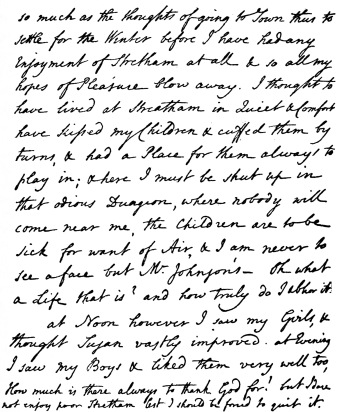 so much as the thoughts of going to Town thus to
settle for the Winter before I have had any
Enjoyment of Streatham at all & so all my
hopes of Pleasure blow away. I thought to
have lived at Streatham in Quiet & Comfort
have kissed my Children & cuffed them by
turns, & had a Place for them always to
play in; & here I must be shut up in
that odious Dungeon, where nobody will
come near me, the Children are to be
sick for want of Air, & I am never to
see a face but Mr. Johnson's — Oh what
a Life that is! and how truly do I abhor it.
at Noon however I saw my Girls, &
thought Susan vastly improved. at Evening
I saw my Boys & liked them very well too,
How much is there always to thank God for! but I dare
not enjoy poor Streatham lest I should be forced to quit it